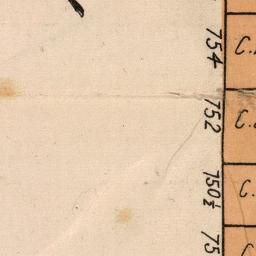 754
C.
752
C.
750½
C.
75
C.